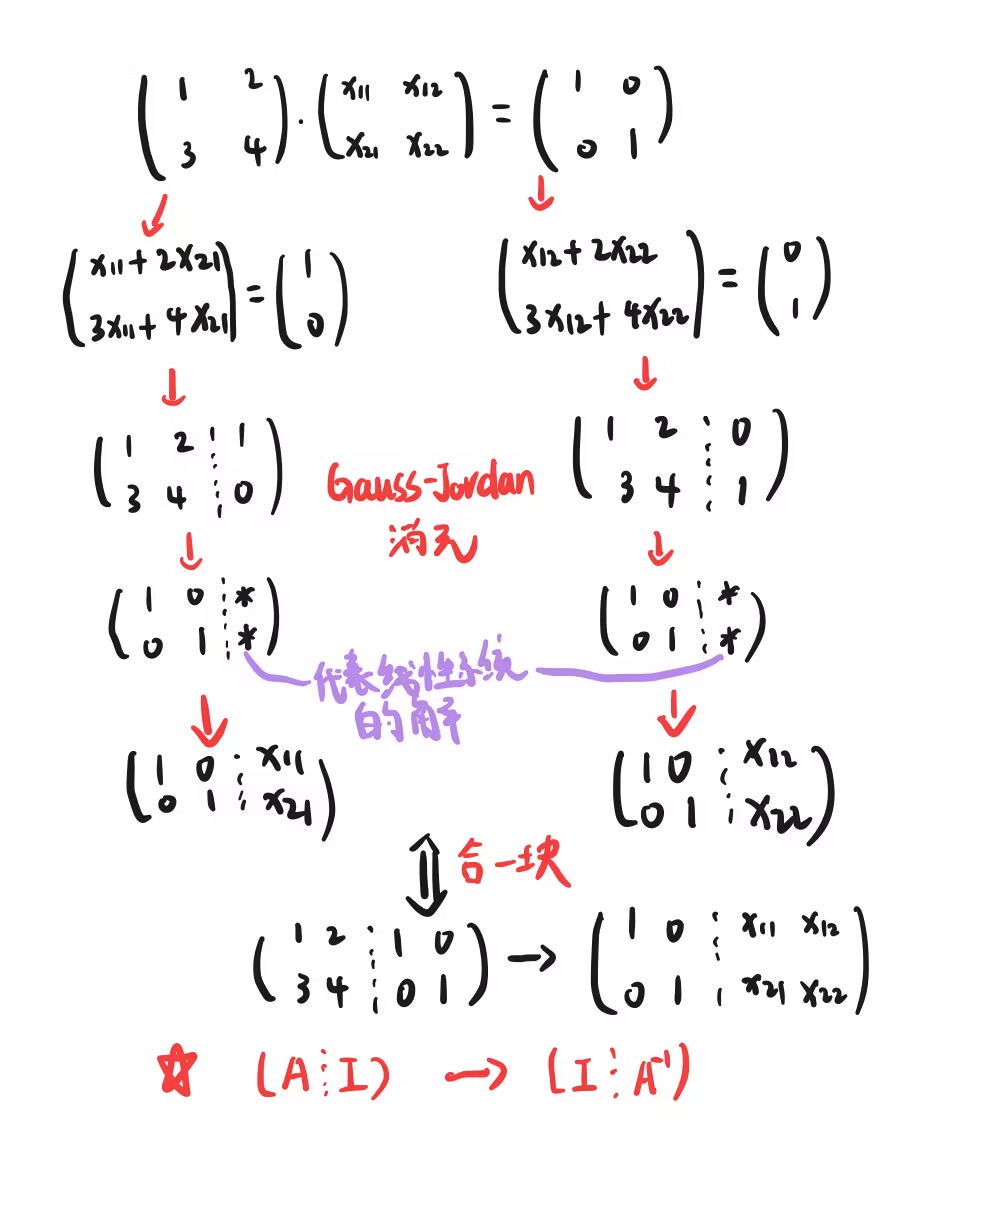 ( 1 2 ) · ( x11 x12 ) = ( 1 0 )
( 3 4 ) ( x21 x22 ) ( 0 1 )
( x11 + 2x21 ) = ( 1 )
( 3x11 + 4x21 ) ( 0 )
( x12 + 2x22 ) = ( 0 )
( 3x12 + 4x22 ) ( 1 )
( 1 2 ⋮ 1 )
( 3 4 ⋮ 0 )
Gauss-Jordan
消元
( 1 2 ⋮ 0 )
( 3 4 ⋮ 1 )
( 1 0 ⋮ * )
( 0 1 ⋮ * )
( 1 0 ⋮ * )
( 0 1 ⋮ * )
代表线性系统
的解
( 1 0 ⋮ x11 )
( 0 1 ⋮ x21 )
( 1 0 ⋮ x12 )
( 0 1 ⋮ x22 )
合一块
( 1 2 ⋮ 1 0 ) → ( 1 0 ⋮ x11 x12 )
( 3 4 ⋮ 0 1 ) ( 0 1 ⋮ x21 x22 )
☆ (A ⋮ I) → (I ⋮ A⁻¹)